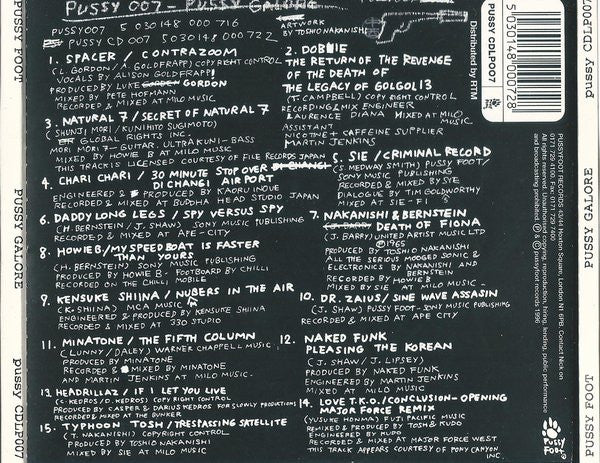 PUSSY 007 - PUSSY GALORE
ARTWORK
BY TOSHIO NAKANISHI
PUSSY007 5 030148 000 716
PUSSY CD 007 5030148 000 722
1. SPACER / CONTRAZOOM
(L. GORDON / A. GOLDFRAPP) COPY RIGHT CONTROL
VOCALS BY ALISON GOLDFRAPP
PRODUCED BY LUKE GORDON GORDON
MIXED BY PETE HOFMANN
RECORDED & MIXED AT MILO MUSIC
2. DOBBIE
THE RETURN OF THE REVENGE
OF THE DEATH OF
THE LEGACY OF GOLGOL 13
(T CAMPBELL) COPY RIGHT CONTROL
RECORDING & MIX ENGINEER
LAURENCE DIANA MIXED AT MILO
ASSISTANT
NICOTINE + CAFFEINE SUPPLIER
MARTIN JENKINS
3. NATURAL 7 / SECRET OF NATURAL 7
(SHUNJI MORI / KUNIHITO SUGIMOTO)
GLOBAL RIGHTS INC.
MORI MORI 7 - GUITAR. ULTRA KUNI - BASS
MIXED BY HOWIE B AT MILO MUSIC
THIS TRACK IS LICENSED COURTESY OF FILE RECORDS JAPAN
4. CHARI CHARI / 30 MINUTE STOP OVER DI CHANGI
DI CHANGI AIR PORT
ENGINEERED & PRODUCED BY KAORU INOUE
RECORDED & MIXED AT BUDDHA HEAD STUDIO JAPAN
5. SIE / CRIMINAL RECORD
(S. MEDWAY SMITH) PUSSY FOOT /
SONY MUSIC PUBLISHING
RECORDED & MIXED BY SIE
DIALOGUE BY TIM GOLDWORTHY
MIXED AT SIE - FI
6. DADDY LONG LEGS / SPY VERSUS SPY
(H. BERNSTEIN / J. SHAW) SONY MUSIC PUBLISHING
RECORDED & MIXED AT APE - CITY
7. NAKANISHI & BERNSTEIN
(J. BARRY) DEATH OF FIONA
(J. BARRY) UNITED ARTIST MUSIC LTD
©1965
PRODUCED BY TOSHIO NAKANISHI
ALL THE SERIOUS MOOGED SONIC &
ELECTRONICS BY NAKANISHI AND
BERNSTEIN
RECORDED BY HOWIE B
MIXED BY SIE AT MILO MUSIC
8. HOWIE B / MY SPEED BOAT IS FASTER
THAN YOURS
(H. BERNSTEIN) SONY MUSIC PUBLISHING
PRODUCED BY HOWIE B - FOOTBOARD BY CHILLI
RECORDED ON THE CHILLI MOBILE
9. KENSUKE SHIINA / NUBERS IN THE AIR
(K. SHIINA) MCA MUSIC
ENGINEERED & PRODUCED BY KENSUKE SHIINA
RECORDED & MIXED AT 330 STUDIO
10. DR. ZAIUS / SINE WAVE ASSASIN
(J. SHAW) PUSSY FOOT - SONY MUSIC PUBLISHING
RECORDED & MIXED AT APE CITY
11. MINATONE / THE FIFTH COLUMN
(LUNNY / DALEY) WARNER CHAPPELL MUSIC
PRODUCED BY MINATONE
RECORDED & MIXED BY MINATONE
AND MARTIN JENKINS AT MILO MUSIC
12. NAKED FUNK
PLEASING THE KOREAN
(J. SHAW / J. LIPSEY)
PRODUCED BY NAKED FUNK
ENGINEERED BY MARTIN JENKINS
MIXED AT MILO MUSIC
13. HEADRILLAZ / IF I LET YOU LIVE
(C. KEDROS / D. KEDROS) COPY RIGHT CONTROL
PRODUCED BY CASPER & DARIUS KEDROS FOR SLOWLY PRODUCTIONS
RECORDED & MIXED AT THE BUNKER
14. LOVE T.K.O. / CONCLUSION - OPENING
MAJOR FORCE REMIX
(YUSUKE HONMA) FUJI PACIFIC MUSIC
REMIXED & PRODUCED BY TOSH & KUDO
ENGINEERED BY KUDO
RECORDED & MIXED AT MAJOR FORCE WEST
THIS TRACK APPEARS COURTESY OF PONY CANYON
INC.
15. TYPHOON TOSH / TRESPASSING SATELLITE
(T. NAKANISHI) COPYRIGHT CONTROL
PRODUCED BY TOSHIO NAKANISHI
MIXED BY SIE AT MILO MUSIC
PUSSY CDLP007
Distributed by RTM
5030148000728
PUSSYFOOT RECORDS
Hoxton Square, London N1 6PB. Contact Nick on
0171 729 4100. Fax: 0171 729 7400
all rights reserved. Unauthorised copying, reproduction, hiring, lending, public performance
and broadcasting prohibited.
pussyfoot records 1996
PUSSY FOOT
PUSSY FOOT
PUSSY GALORE
pussy CDLP007
pussy CDLP007
PUSSY GALORE
PUSSY FOOT